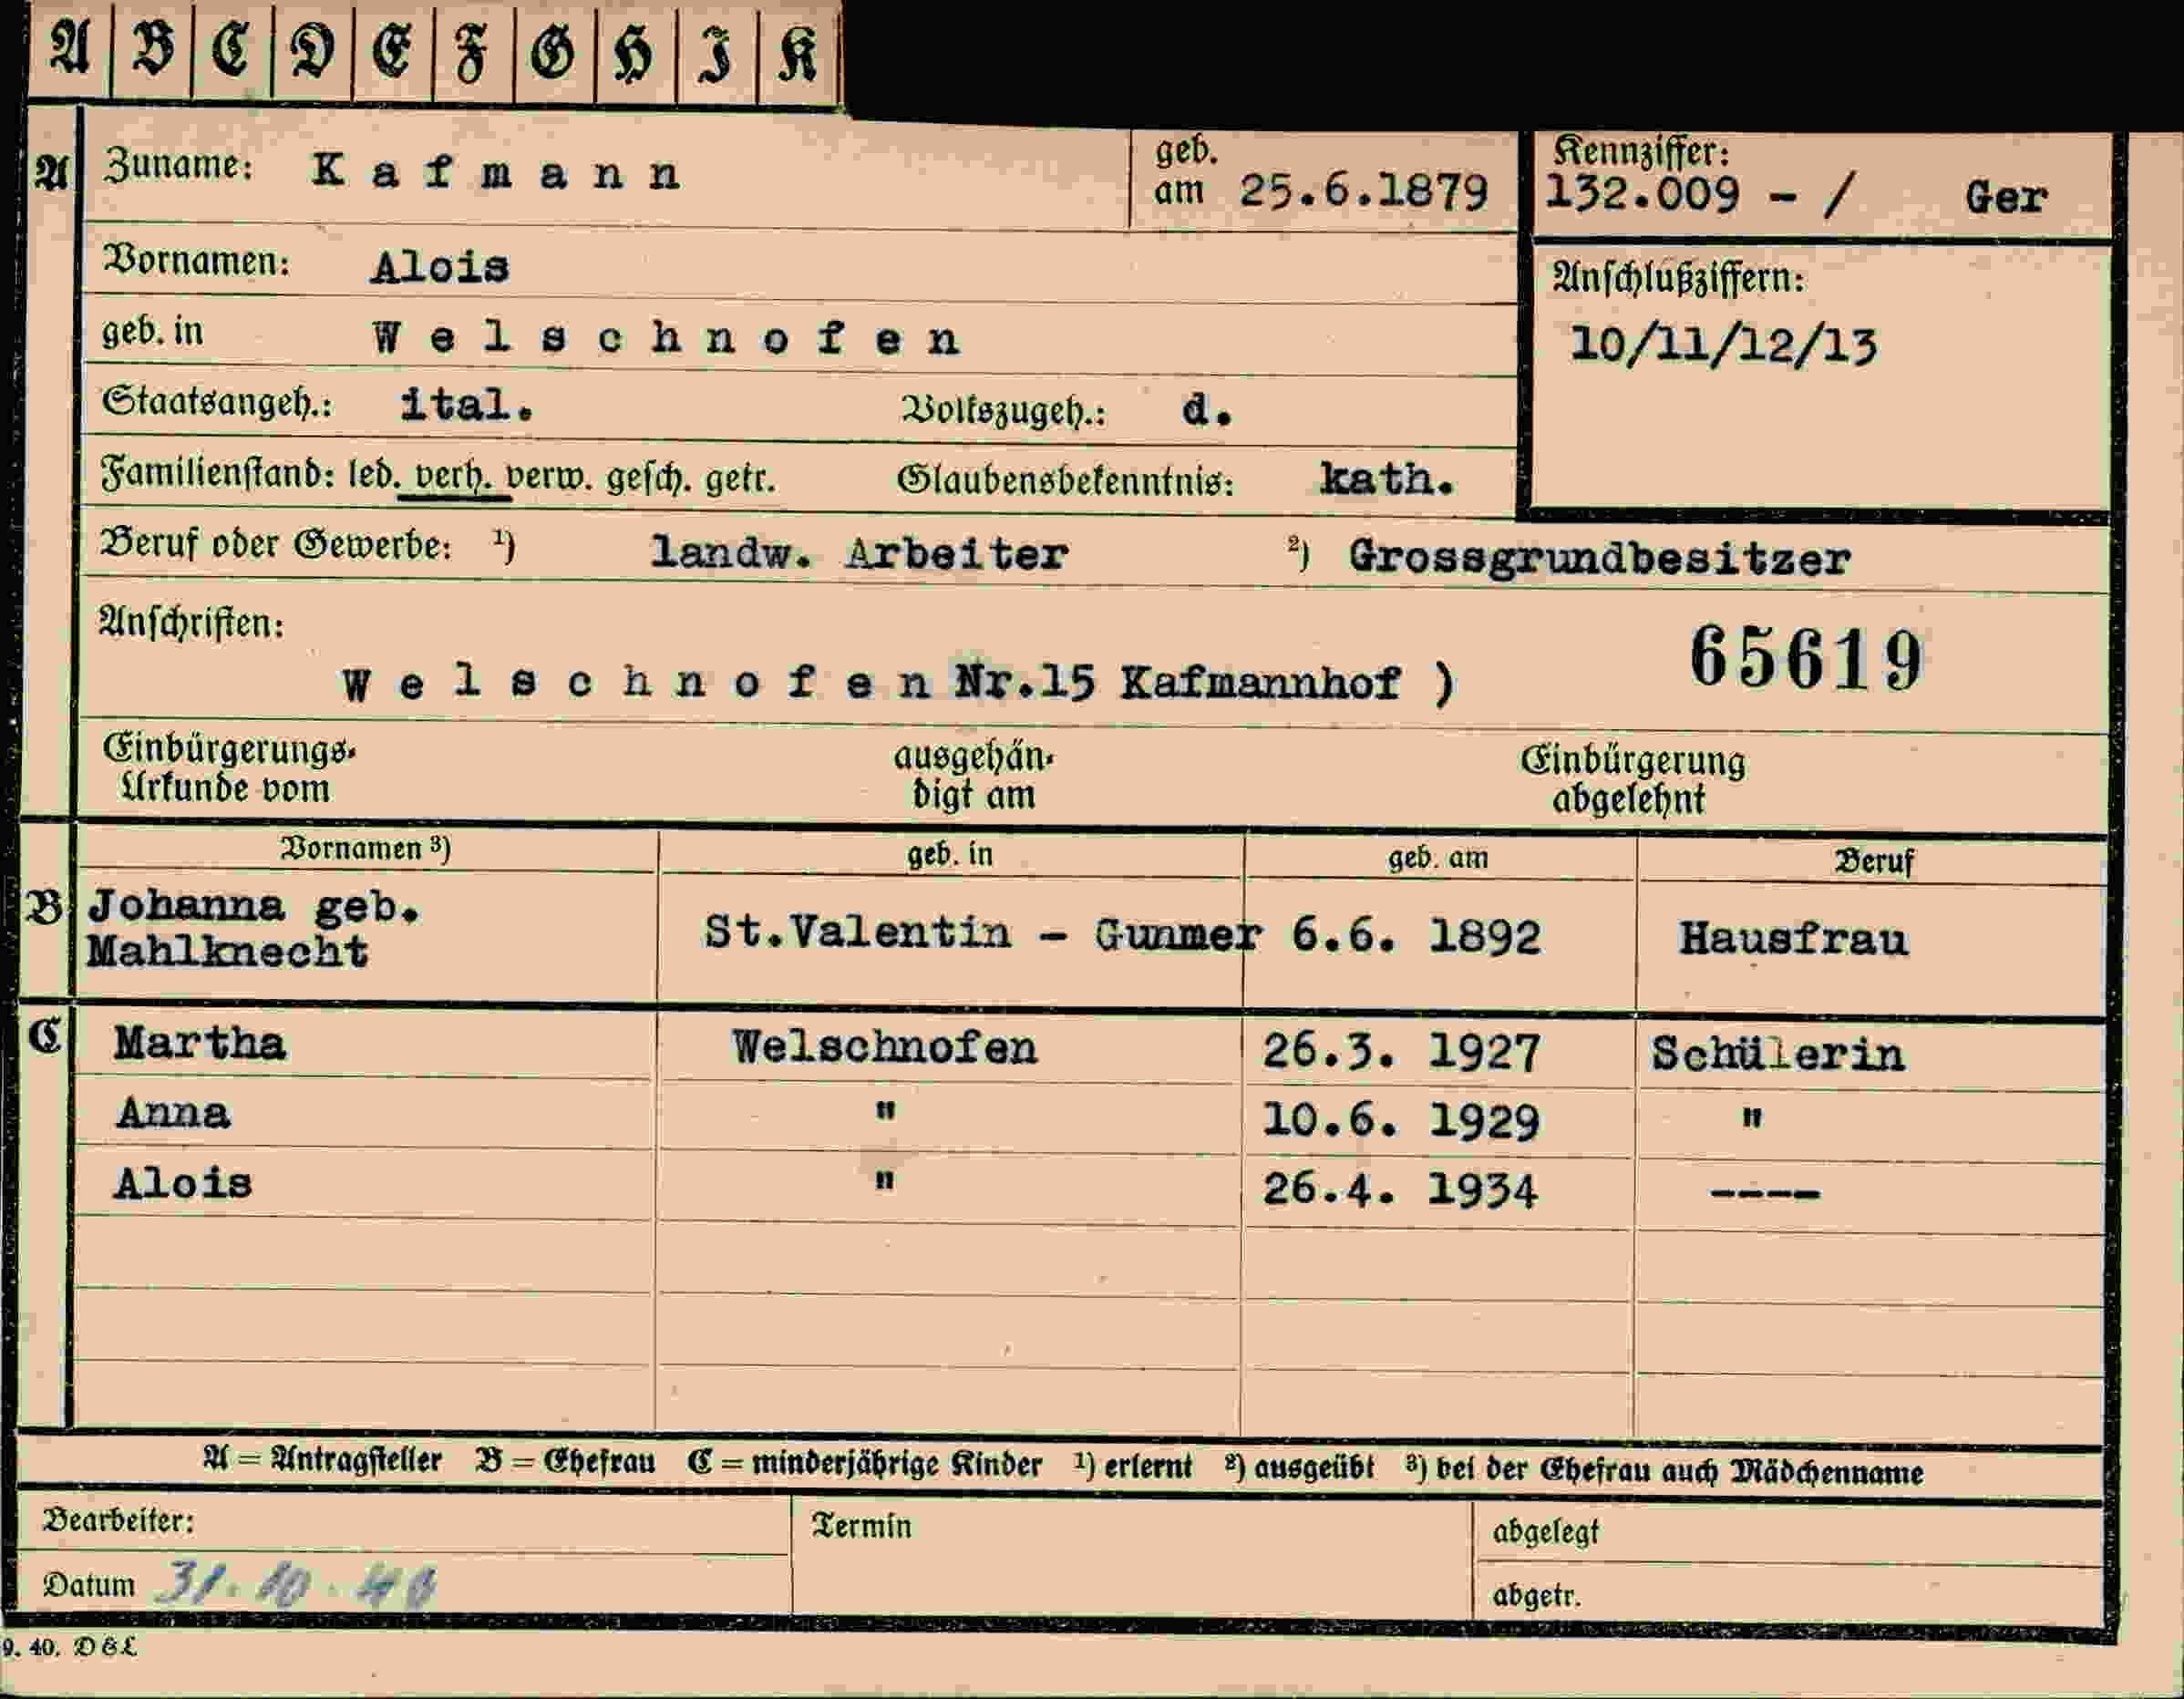 A B C D E F G H I K
A Zuname: Kafmann geb. am 25.6.1879
Kennziffer: 132.009 - / Ger
Vornamen: Alois
Anschlußziffern:
geb. in Welschnofen
10/11/12/13
Staatsangeh.: ital. Volkszugeh.: d.
Familienstand: led. verh. verw. gesch. getr. Glaubensbekenntnis: kath.
Beruf oder Gewerbe: ¹) landw. Arbeiter ²) Grossgrundbesitzer
Anschriften:
Welschnofen Nr.15 Kafmannhof )
65619
Einbürgerungs-Urkunde vom ausgehändigt am Einbürgerung abgelehnt
Vornamen ³) geb. in geb. am Beruf
B Johanna geb.
Mahlknecht St.Valentin - Gunmer 6.6. 1892 Hausfrau
C Martha Welschnofen 26.3. 1927 Schülerin
Anna " 10.6. 1929 "
Alois " 26.4. 1934 ----
A = Antragsteller B = Ehefrau C = minderjährige Kinder ¹) erlernt ²) ausgeübt ³) bei der Ehefrau auch Mädchenname
Bearbeiter: Termin abgelegt
Datum 31.10.40 abgetr.
9. 40. DEL